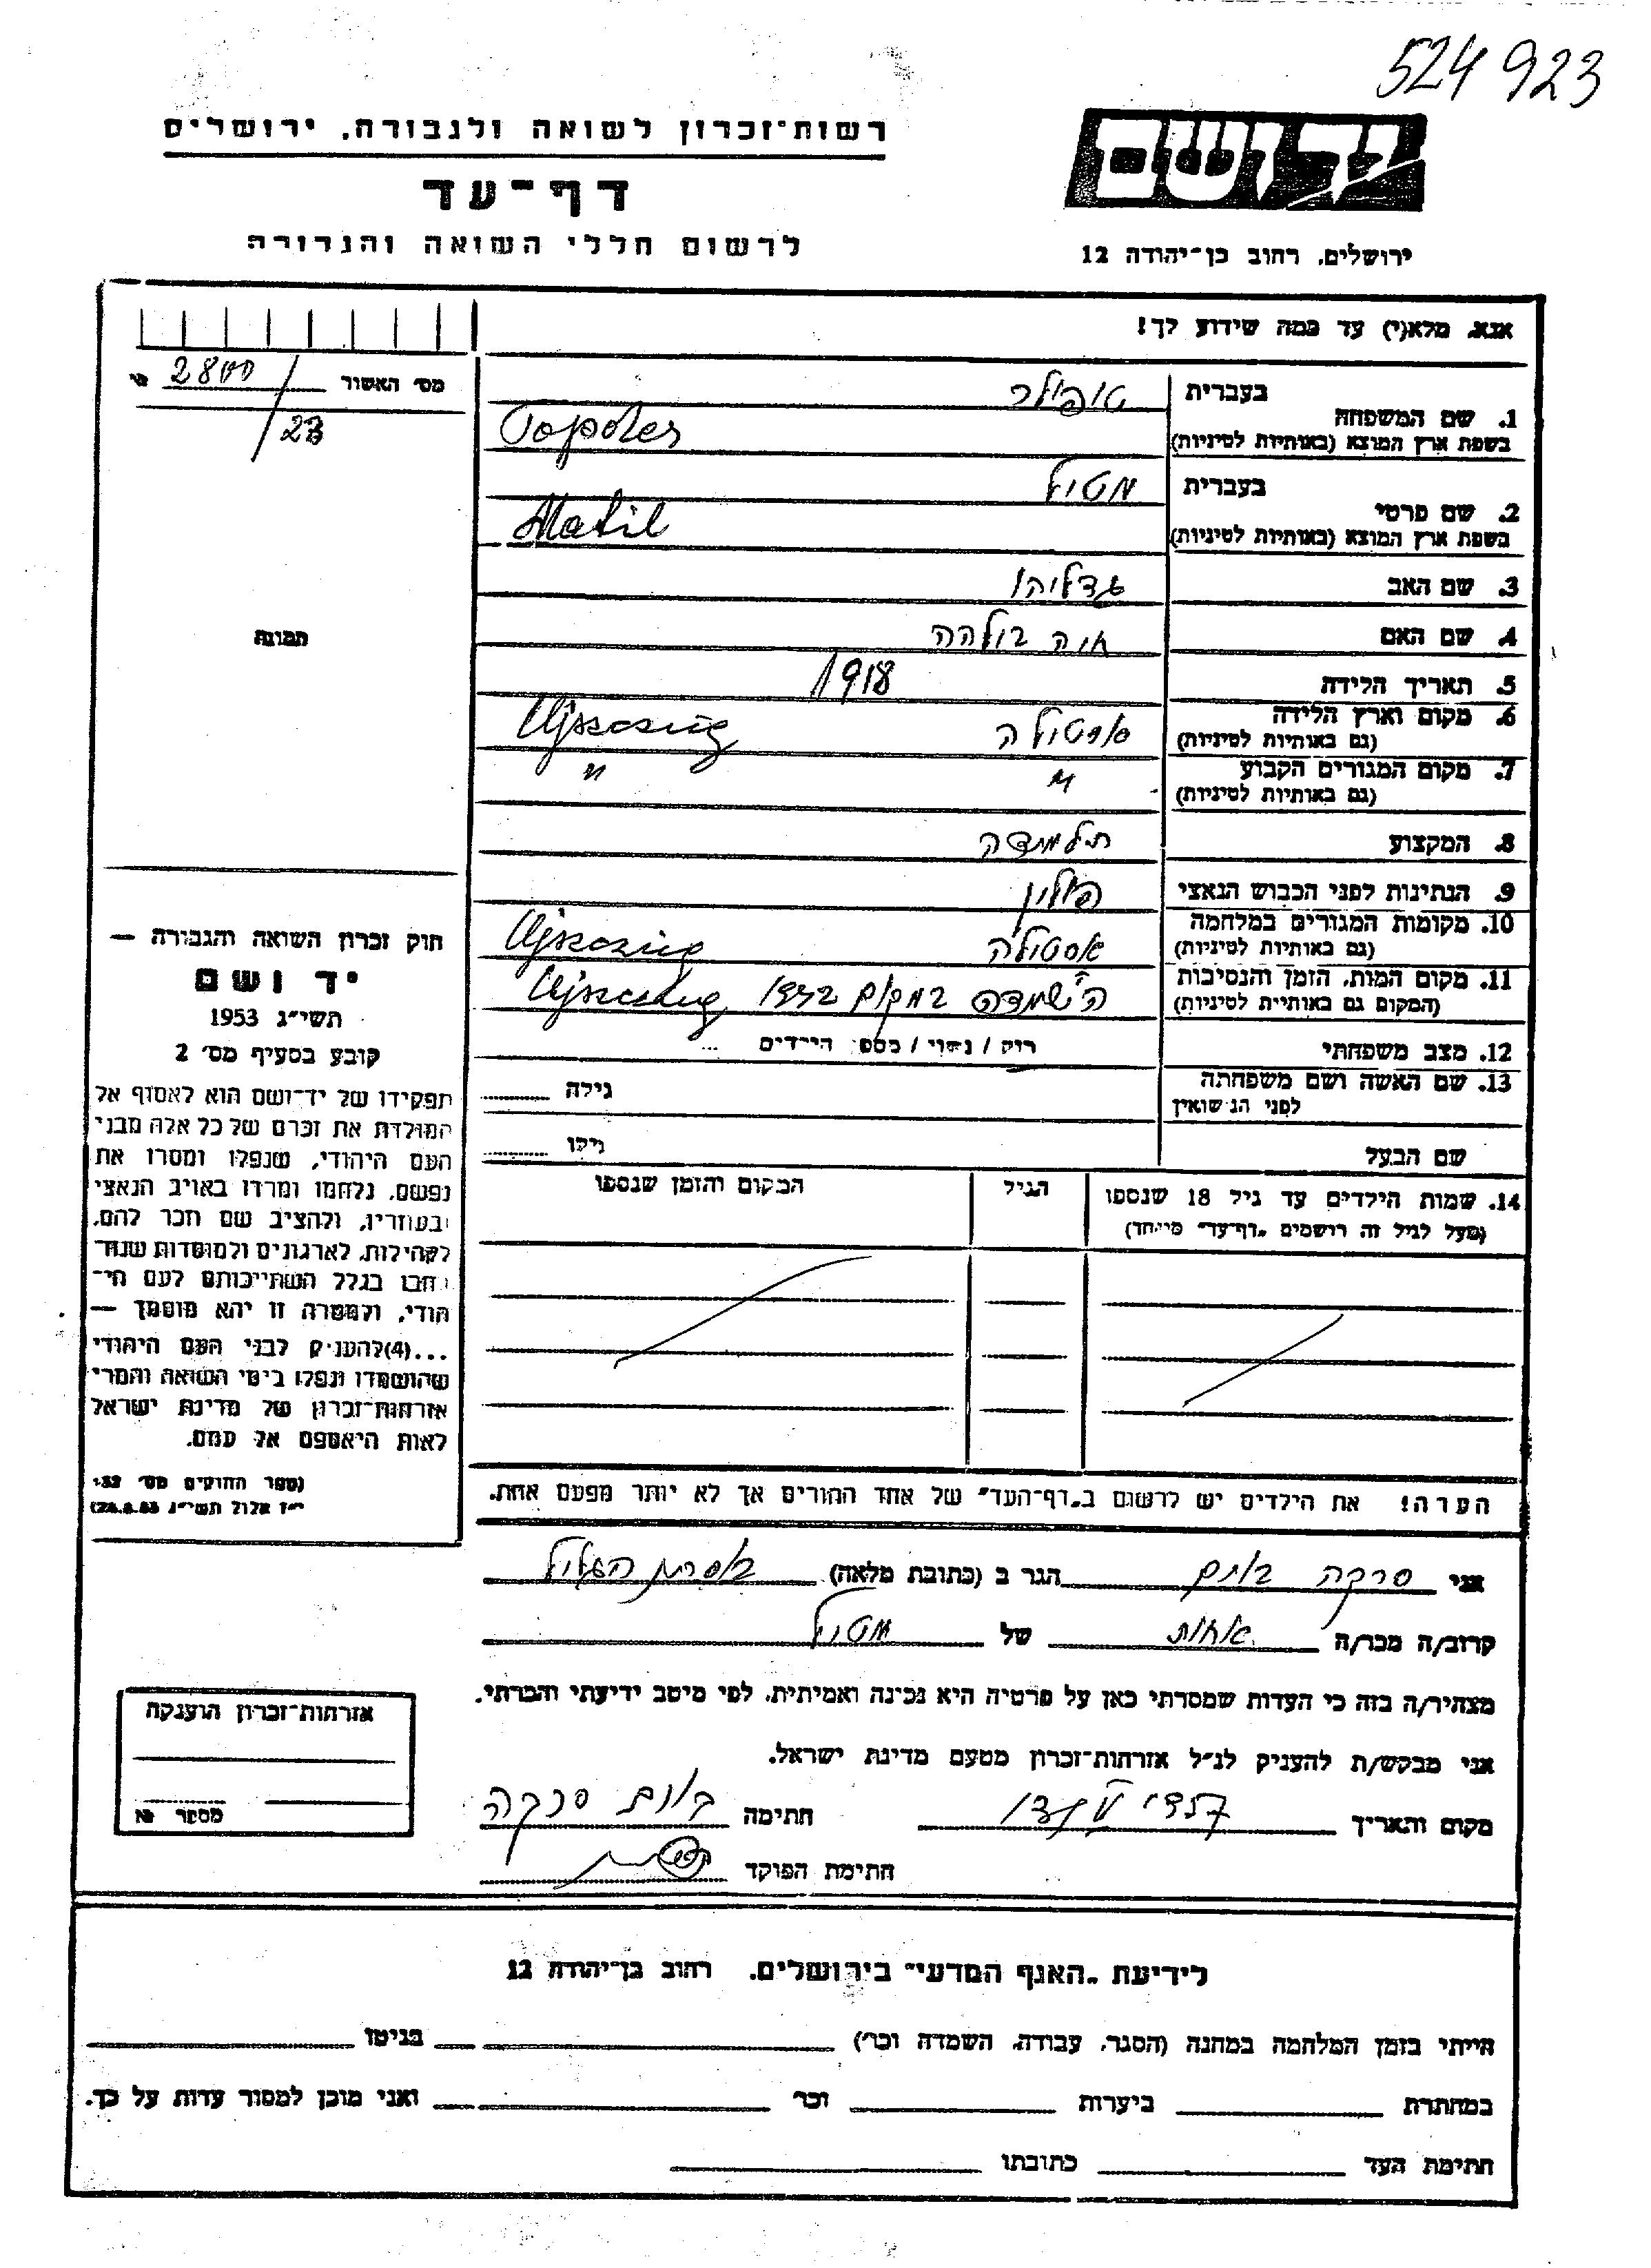 524923
רשות־זכרון לשואה ולגבורה, ירושלים
יד ושם
דף־עד
לרשום חללי השואה והגבורה
ירושלים, רחוב בן־יהודה 12
אנא, מלא(י) עד כמה שידוע לך!
מס׳ האשור 2800
/23
1. שם המשפחה בעברית טופולר
בשפת ארץ המוצא (באותיות לטיניות) Topoler
2. שם פרטי בעברית מטיל
בשפת ארץ המוצא (באותיות לטיניות) Matil
3. שם האב גדליהו
4. שם האם חיה
תמונה
5. תאריך הלידה 1918
6. מקום וארץ הלידה
(גם באותיות לטיניות)
7. מקום המגורים הקבוע " "
(גם באותיות לטיניות)
8. המקצוע תלמידה
9. הנתינות לפני הכבוש הנאצי פולין
10. מקומות המגורים במלחמה
(גם באותיות לטיניות)
11. מקום המות, הזמן והנסיבות במקום 1942
(המקום גם באותיות לטיניות)
12. מצב משפחתי רווק / נשוי / מספר הילדים
13. שם האשה ושם משפחתה גילה
לפני הנישואין
שם הבעל גילו
14. שמות הילדים עד גיל 18 שנספו הגיל המקום והזמן שנספו
(מעל לגיל זה רושמים „דף־עד״ מיוחד)
הערה! את הילדים יש לרשום ב„דף־העד״ של אחד ההורים אך לא יותר מפעם אחת.
חוק זכרון השואה והגבורה —
יד ושם
תשי״ג 1953
קובע בסעיף מס׳ 2
תפקידו של יד־ושם הוא לאסוף אל
המולדת את זכרם של כל אלה מבני
העם היהודי, שנפלו ומסרו את
נפשם, נלחמו ומרדו באויב הנאצי
ובעוזריו, ולהציב שם וזכר להם,
לקהילות, לארגונים ולמוסדות שנח־
רבו בגלל השתייכותם לעם הי־
הודי, ולמטרה זו יהא מוסמך —
...(4) להעניק לבני העם היהודי
שהושמדו ונפלו בימי השואה והמרי
אזרחות־זכרון של מדינת ישראל
לאות היאספם אל עמם.
(ספר החוקים מס׳ 132,
י״ז אלול תשי״ג 28.8.53)
אני הגר ב (כתובת מלאה)
קרוב/ה מכר/ה אחות של מטיל
מצהיר/ה בזה כי העדות שמסרתי כאן על פרטיה היא נכונה ואמיתית, לפי מיטב ידיעתי והכרתי.
אני מבקש/ת להעניק לנ״ל אזרחות־זכרון מטעם מדינת ישראל.
מקום ותאריך חתימה
חתימת הפוקד
אזרחות־זכרון הוענקה
מספר №
לידיעת „האגף המדעי״ בירושלים, רחוב בן־יהודה 12
הייתי בזמן המלחמה במחנה (הסגר, עבודה, השמדה וכו׳) בגיטו
במחתרת ביערות וכו׳ ואני מוכן למסור עדות על כך.
חתימת העד כתובתו